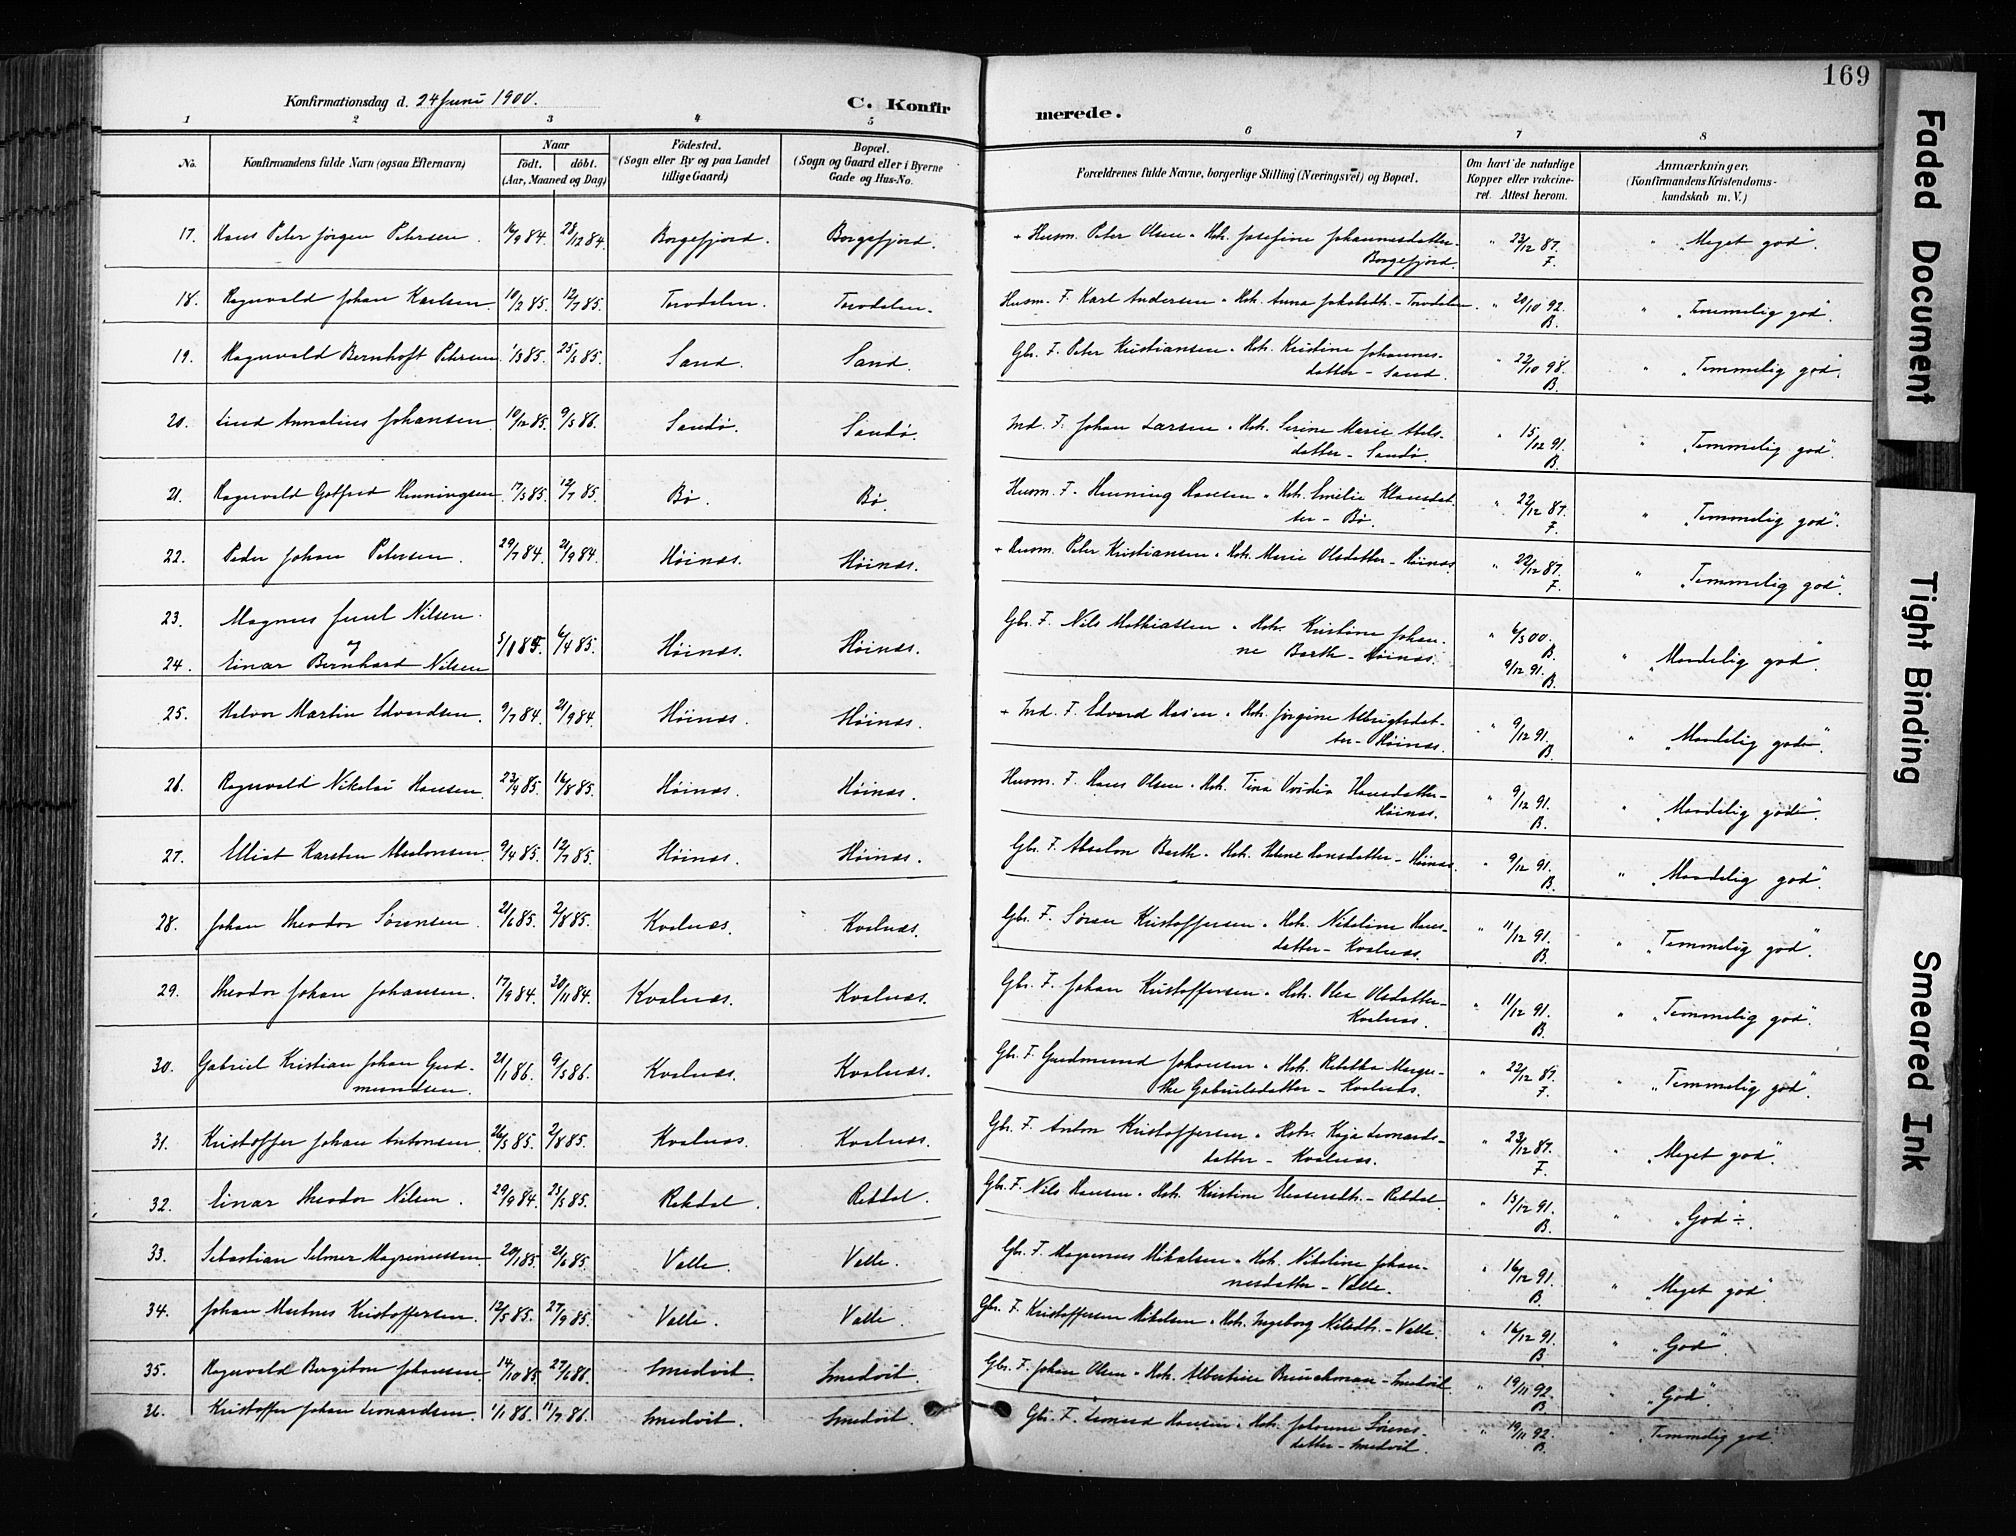 169
Konfirmationsdag d. 24 Juni 1900.
C. Konfirmerede.
1 2 3 4 5 6 7 8
No.
Konfirmandens fulde Navn (ogsaa Efternavn)
Naar
födt. döbt.
(Aar, Maaned og Dag)
Födested.
(Sogn eller By og paa Landet
tillige Gaard)
Bopæl.
(Sogn og Gaard eller i Byerne
Gade og Hus-No.
Forældrenes fulde Navne, borgerlige Stilling (Næringsvei) og Bopæl.
Om havt de naturlige
Kopper eller vakcine-
ret. Attest herom.
Anmærkninger.
(Konfirmandens Kristendoms-
kundskab m. V.)
17. Hans Peter Jørgen Petersen. 16/9 84. 28/12 84. Borgefjord. Borgefjord. + Husm. Peter Olsen Josefine Johannesdatter - " 23/12 87. " "Meget god".
Borgefjord. F.
18. Ragnvald Johan Karlsen 10/2 85. 12/7 85. Torvdalen. Torvdalen. Husm. F. Karl Andersen Anna Jakobsdtr. - Torvdalen. " 20/10 92. " "Temmelig god".
B.
19. Ragnvald Bernhoft Petersen 1/3 85. 25/5 85. Sand. Sand. Gbr. F. Peter Kristiansen Kristine Johannes- " 22/10 98. " "Temmelig god".
datter - Sand. B.
20. Johansen 10/12 85. 9/5 86. Sandø. Sandø. Ind. F. Johan Larsen Serine Marie Abels- " 15/12 91. " "Temmelig god".
datter - Sandø. B.
21. Ragnvald Gotfred Henningsen. 17/5 85. 12/7 85. Bø. Bø. Husm. F. Henning Hansen Emelie Klausdat- " 22/12 87. " "Temmelig god".
ter - Bø. F.
22. Peder Johan Petersen. 29/7 84. 21/9 84. Høinæs. Høinæs. + Husm. Peter Kristiansen Marie Olsdatter - Høinæs. " 22/12 87. " "Temmelig god".
F.
23. Magnus Juul Nilsen. Gbr. F. Nils Mathiassen Kristine Johan- " 6/5 00.
og 5/1 85. 6/4 85. Høinæs. Høinæs. ne Barth - Høinæs. B. " "Maadelig god".
24. Einar Bernhard Nilsen 9/12 91.
B.
25. Halvor Martin Edvardsen. 9/7 84. 21/9 84. Høinæs. Høinæs. + Ind. F. Edvard Hansen Jørgine Albrigtsdat- " 9/12 91. " "Maadelig god÷".
ter - Høinæs. B.
26. Ragnvald Nikolai Hansen. 23/4 85. 16/8 85. Høinæs. Høinæs. Husm. F. Hans Olsen Tina Hansdatter - " 9/12 91. " "Maadelig god÷"
Høinæs. B.
27. Elliot Karsten Absalonsen. 9/4 85. 12/7 85. Høinæs. Høinæs. Gbr. F. Absalon Barth Helene Hansdatter - Høinæs. " 9/12 91. " "Maadelig god".
B.
28. Johan Theodor Sørensen. 21/6 85. 2/8 85. Kvalnæs. Kvalnæs. Gbr. F. Søren Kristoffersen Nikoline Hans- " 11/12 91. " "Temmelig god"
datter - Kvalnæs. B.
29. Theodor Johan Johansen. 17/9 84. 30/11 84. Kvalnæs. Kvalnæs. Gbr. F. Johan Kristoffersen Olea Olsdatter - " 11/12 91. " "Temmelig god".
Kvalnæs. B.
30. Gabriel Kristian Johan Gud- 21/1 86. 9/5 86. Kvalnæs. Kvalnæs. Gbr. F. Gudmund Johansen Rebekka Margre- " 22/12 87. " "Temmelig god".
mundsen. the Gabrielsdatter - Kvalnæs. F.
31. Kristoffer Johan Antonsen 26/5 85. 2/8 85. Kvalnæs. Kvalnæs. Gbr. F. Anton Kristoffersen Kaja Leonards- " 23/12 87. " "Meget god".
datter - Kvalnæs. F.
32. Einar Theodor Nilsen. 29/9 84. 25/5 85. Rekdal. Rekdal. Gbr. F. Nils Hansen Kristine - Rekdal. " 15/12 91. " "God÷.
B.
33. Sebastian Selmer Magnussen 20/1 85. 21/6 85. Valle. Valle. Gbr. F. Magnus Mikalsen Nikoline Johan- " 16/12 91. " "Meget god".
nesdatter - Valle. B.
34. Johan Kristoffersen. 12/5 85. 27/9 85. Valle. Valle. Gbr. F. Kristoffersen Mikalsen Ingeborg - Valle. " 16/12 91. " "God".
B.
35. Ragnvald Bergiton Johansen. 14/10 85. 27/6 86. Smedvik. Smedvik. Gbr. F. Johan Olsen Albertine - Smedvik. " 19/11 92. " "God".
B.
36. Kristoffer Johan Leonardsen. 1/1 86. 11/7 86. Smedvik. Smedvik. Gbr. F. Leonard Hansen Johanne Sørens- " 19/11 92. " "Temmelig god".
datter - Smedvik. B.
Faded Document
Tight Binding
Smeared Ink